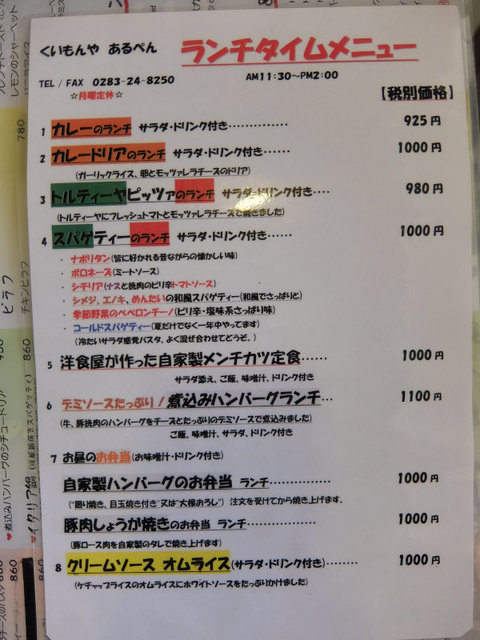 くいもんや あるぺん
ランチタイムメニュー
TEL / FAX 0283-24-8250
AM11:30~PM2:00
☆月曜定休☆
【税別価格】
1 カレーのランチ サラダ・ドリンク付き・・・・・・・・・・・・・・ 925円
2 カレードリアのランチ サラダ・ドリンク付き・・・・・・・・ 1000円
(ガーリックライス、卵とモッツァレラチーズのドリア)
3 トルティーヤピッツァのランチ サラダ・ドリンク付き・・・・ 980円
(トルティーヤにフレッシュトマトとモッツァレラチーズで焼きました)
4 スパゲティーのランチ サラダ・ドリンク付き・・・・・・・ 1000円
・ ナポリタン(皆に好かれる昔ながらの懐かしい味)
・ ボロネーズ(ミートソース)
・ シチリア(ナスと挽肉のピリ辛トマトソース)
・ シメジ、エノキ、めんたいの和風スパゲティー(和風でさっぱりと)
・ 季節野菜のペペロンチーノ(ピリ辛・塩味系さっぱり味)
・ コールドスパゲティー(夏だけでなく一年中やってます)
(冷たいサラダ感覚パスタ、よく混ぜ合わせてどうぞ、)
5 洋食屋が作った自家製メンチカツ定食・・・・・・ 1000円
サラダ添え、ご飯、味噌汁、ドリンク付き
6 デミソースたっぷり!煮込みハンバーグランチ・・・ 1100円
(牛、豚挽肉のハンバーグをチーズとたっぷりのデミソースで煮込みました)
ご飯、味噌汁、サラダ、ドリンク付き
7 お昼のお弁当(お味噌汁・ドリンク付き)
自家製ハンバーグのお弁当 ランチ・・・・・・・・・ 1000円
("照り焼き、目玉焼き付き"又は"大根おろし") 注文を受けてから焼き上げます。
豚肉しょうが焼きのお弁当 ランチ・・・・・・・・ 1000円
(豚ロース肉を自家製のタレで焼き上げます)
8 クリームソース オムライス(サラダ・ドリンク付き)・・・・・・・ 1000円
(ケチャップライスのオムライスにホワイトソースをたっぷりかけました)
レモンのシャーベット
780
ピラフ
チキンピラフ
860
♥煮込みハンバーグのシチュードリア
860
860